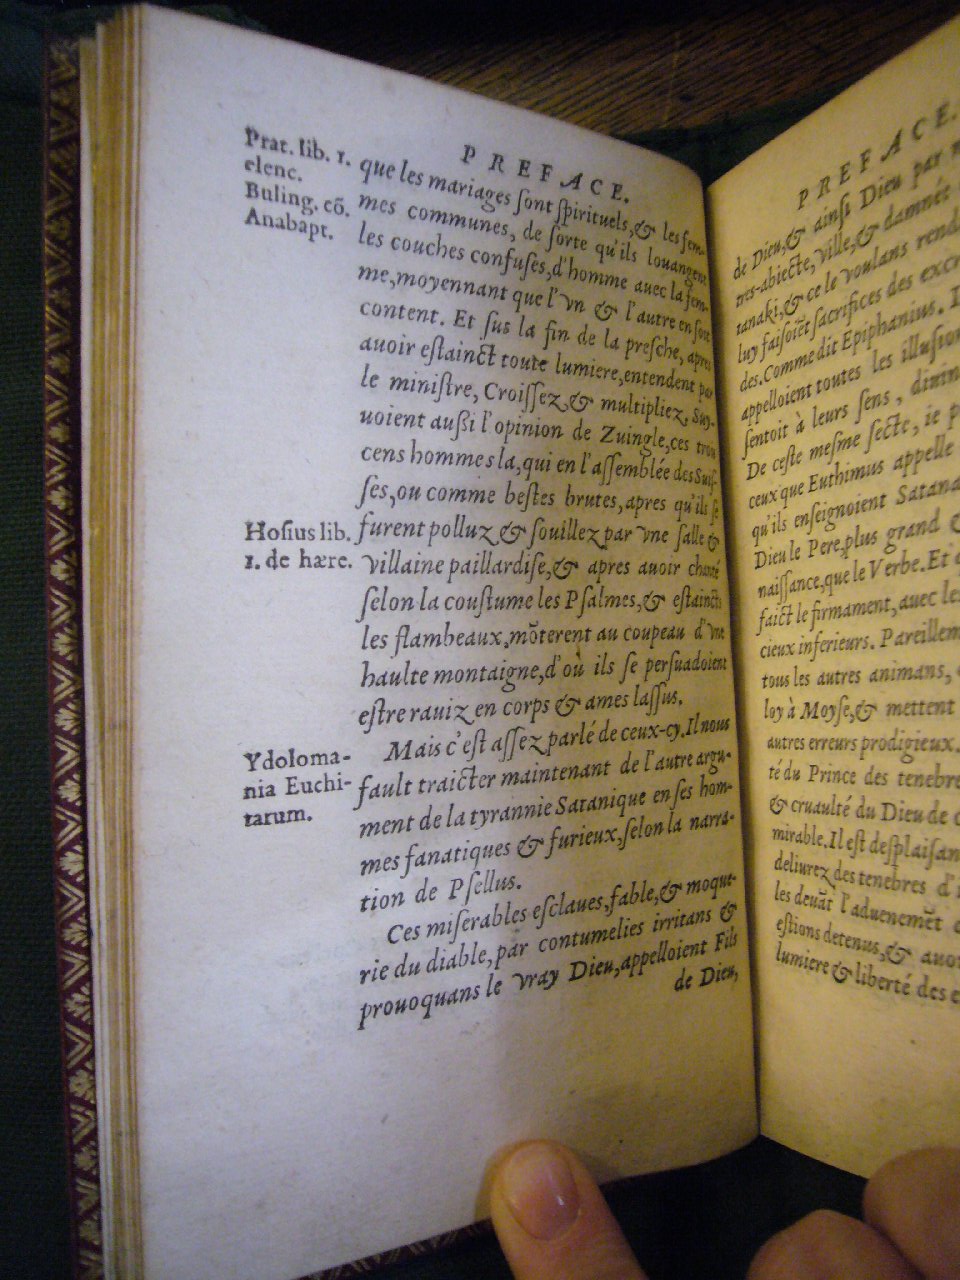 PREFACE.
Prat. lib. 1.
elenc.
Buling. cõ.
Anabapt.
que les mariages sont spirituels, & les fem-
mes communes, de sorte qu'ils louangent
les couches confuses, d'homme auec la fem-
me, moyennant que l'vn & l'autre en soit
content. Et sus la fin de la presche, apres
auoir estainct toute lumiere, entendent par
le ministre, Croissez, & multipliez. Suy-
uoient aussi l'opinion de Zuingle, ces trois
cens hommes la, qui en l'assemblée des Suis-
ses, ou comme bestes brutes, apres qu'ils se
Hosius lib.
1. de hære.
furent polluz & souillez par vne salle &
villaine paillardise, & apres auoir chanté
selon la coustume les Psalmes, & estaincts
les flambeaux, mõterent au coupeau d'vne
haulte montaigne, d'où ils se persuadoient
estre rauiz en corps & ames lassus.
Ydoloma-
nia Euchi-
tarum.
Mais c'est assez parlé de ceux-cy. Il nous
fault traicter maintenant de l'autre argu-
ment de la tyrannie Satanique en ses hom-
mes fanatiques & furieux, selon la narra-
tion de Psellus.
Ces miserables esclaues, fable, & moque-
rie du diable, par contumelies irritans &
prouoquans le vray Dieu, appelloient Fils
de Dieu,
PREFACE.
de Dieu, & ainsi Dieu par
tres-abiecte, ville, & damnée
tanaki, & ce le voulans rend
luy faisoiẽt sacrifices des excr
des. Comme dit Epiphanius.
appelloient toutes les illusion
sentoit à leurs sens, diuin
De ceste mesme secte, ie p
ceux que Euthimus appelle
qu'ils enseignoient Satana
Dieu le Pere, plus grand
naissance, que le Verbe. Et
faict le firmament, auec les
cieux inferieurs. Pareillem
tous les autres animans,
loy à Moyse, & mettent
autres erreurs prodigieux.
té du Prince des tenebre
& cruaulté du Dieu de
mirable. Il est desplaisan
deliurez des tenebres d'i
les deuãt l'aduenemẽt
estions detenus, & auo
lumiere & liberté des e